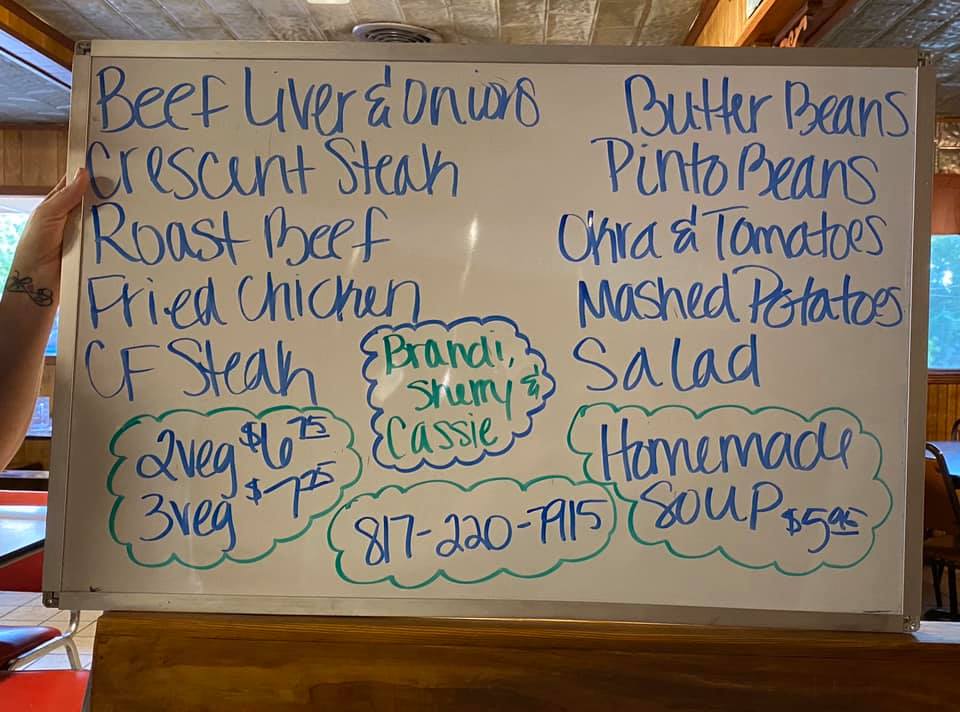 Beef Liver & Onions
Crescent Steak
Roast Beef
Fried Chicken
CF Steak
Butter Beans
Pinto Beans
Okra & Tomatoes
Mashed Potatoes
Salad
Brandi,
Sherry &
Cassie
2veg $6 75
3veg $7 25
817-220-7915
Homemade
Soup $5.95